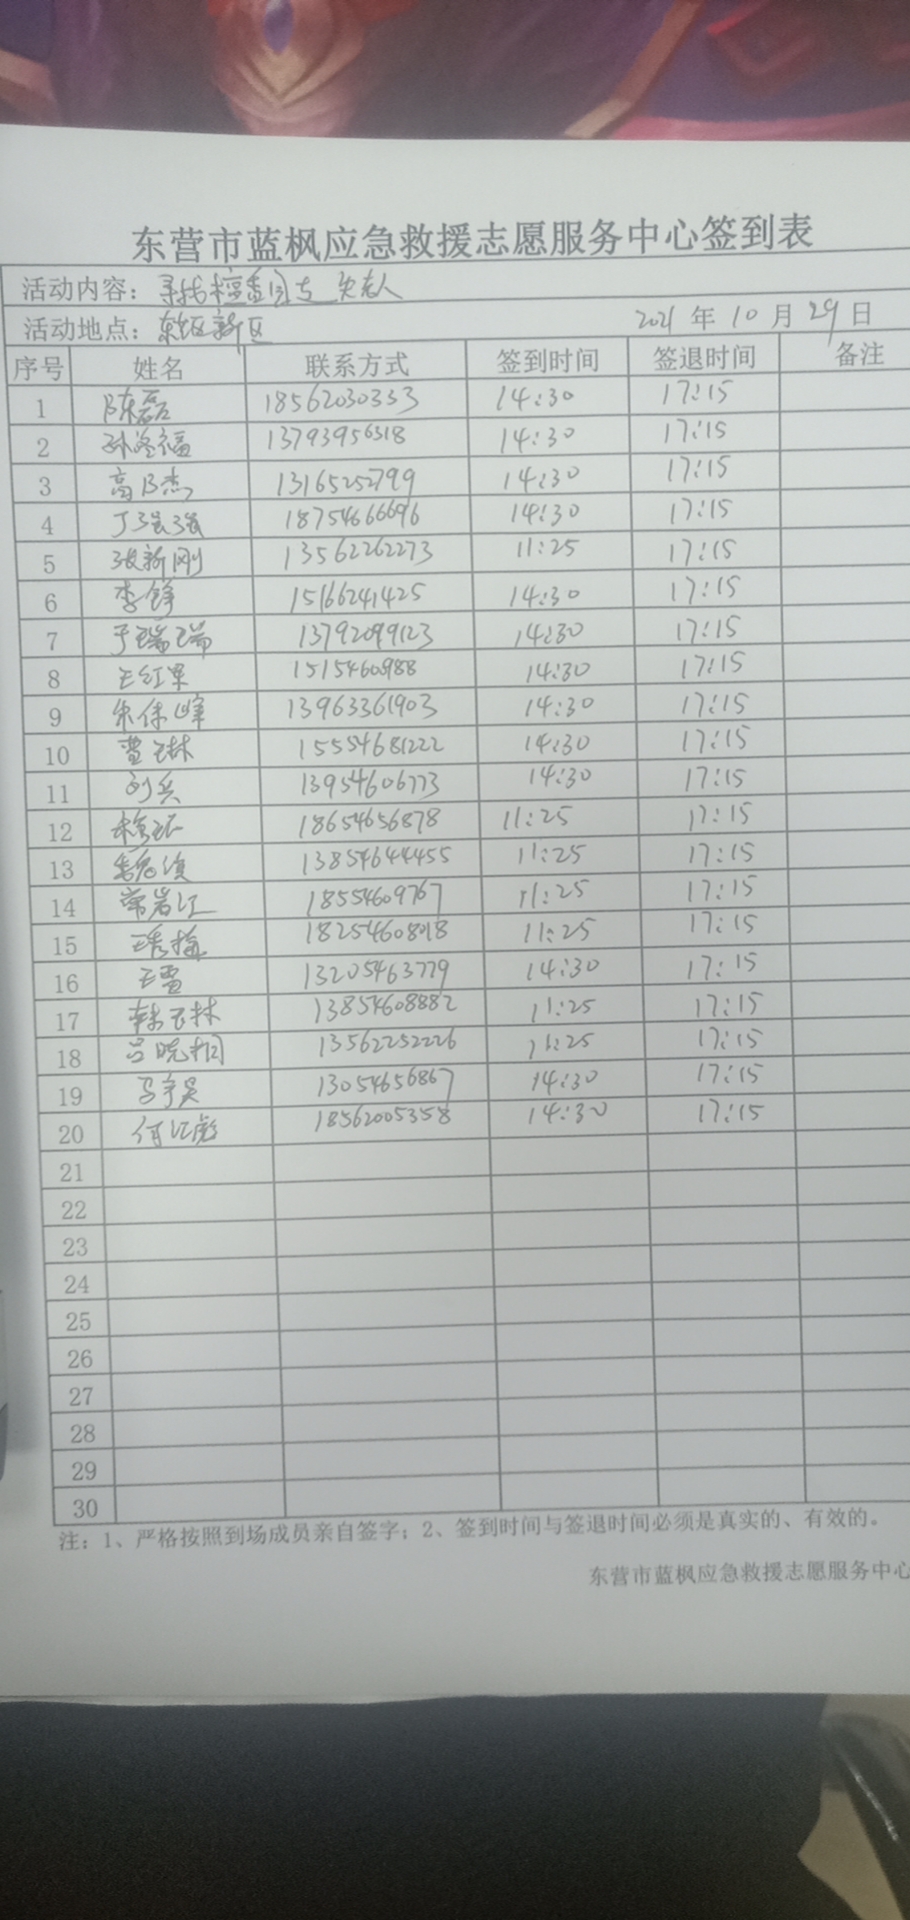 东营市蓝枫应急救援志愿服务中心签到表
活动内容：寻找檀香园走失老人
活动地点：东城区新区 2021 年 10 月 29 日
序号 姓名 联系方式 签到时间 签退时间 备注
1 陈磊 18562030333 14:30 17:15
2 13793956318 14:30 17:15
3 高 杰 13165252799 14:30 17:15
4 丁强强 18754666696 14:30 17:15
5 张新刚 13562262273 11:25 17:15
6 李铮 15166241425 14:30 17:15
7 于瑞瑞 13792099123 14:30 17:15
8 王红军 15154609888 14:30 17:15
9 朱保峰 13963361903 14:30 17:15
10 曹玉林 15554681222 14:30 17:15
11 刘兵 13954606773 14:30 17:15
12 18654656878 11:25 17:15
13 13854644455 11:25 17:15
14 常岩江 18554609767 11:25 17:15
15 11:25 17:15
16 王雪 13205463779 14:30 17:15
17 韩玉林 13854608882 11:25 17:15
18 吕晓桐 13562252226 11:25 17:15
19 马宇昊 13054656867 14:30 17:15
20 何江彪 18562005358 14:30 17:15
21
22
23
24
25
26
27
28
29
30
注：1、严格按照到场成员亲自签字；2、签到时间与签退时间必须是真实的、有效的。
东营市蓝枫应急救援志愿服务中心